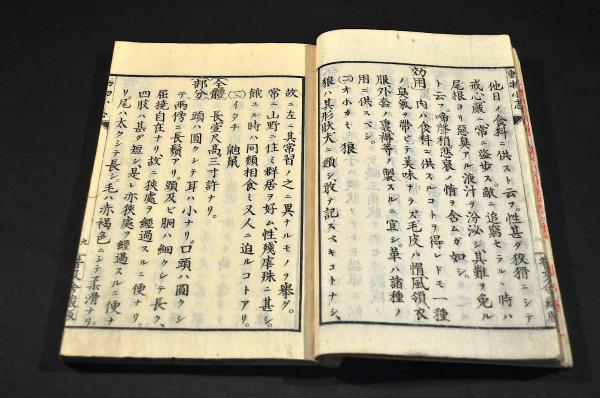 他日ノ食料ニ供スト云フ。性甚ダ狡猾ニシテ
戒心嚴ニ常ニ盗歩ス。敵ニ追窮セラルヽ時ハ
尾根ヨリ惡臭アル液汁ヲ分泌シ其難ヲ免ル
ト云フ。啼聲稍悲哀ノ情ヲ含ムガ如シ。
効用 肉ハ食料ニ供スルコトヲ得レドモ一種
ノ臭氣ヲ帶ビテ美味ナラズ。毛皮ハ帽風領衣
服外套ノ裏褥等ノ製スルニ宜シ。革ハ諸種ノ
用ニ供スベシ。
(二)オホカミ 狼
狼ハ其形狀犬ニ類シ敢テ記スベキコトナシ、
故ニ左ニ其常習ノ之ニ異ナルモノヲ擧グ。
常ニ山野ニ住ミ群居ヲ好ム。性殘虐殊ニ甚シ。
餓ユル時ハ同類相食ミ又人ニ迫ルコトアリ。
(三)イタチ 鼬鼠
全體 長壹尺高三寸許ナリ。
部分 頭ハ圓クシテ耳ハ小ナリ。口頭ハ圓クシ
テ兩傍ニ長鬚アリ。頸及ビ胴ハ細クシテ長ク、
屈撓自在ナリ故ニ狹處ヲ經過スルニ便ナリ。
四肢ハ甚ダ短シ是レ亦狹處ヲ經過スルニ便ナ
リ尾ハ太クシテ長シ。毛ハ赤褐色ニシテ柔滑ナリ。
九